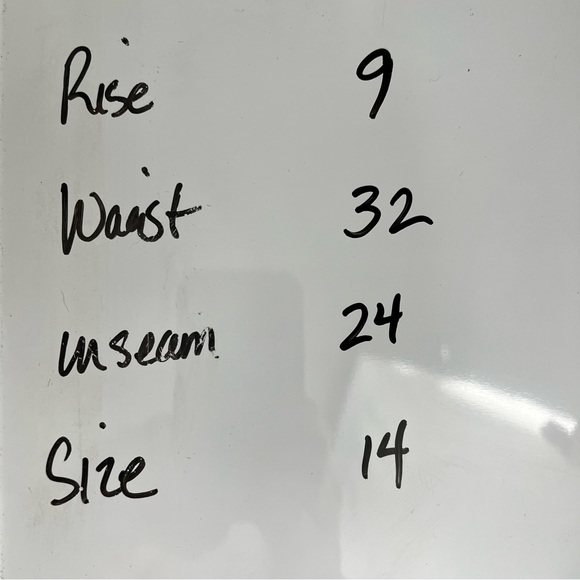 Rise 9
Waist 32
inseam 24
Size 14